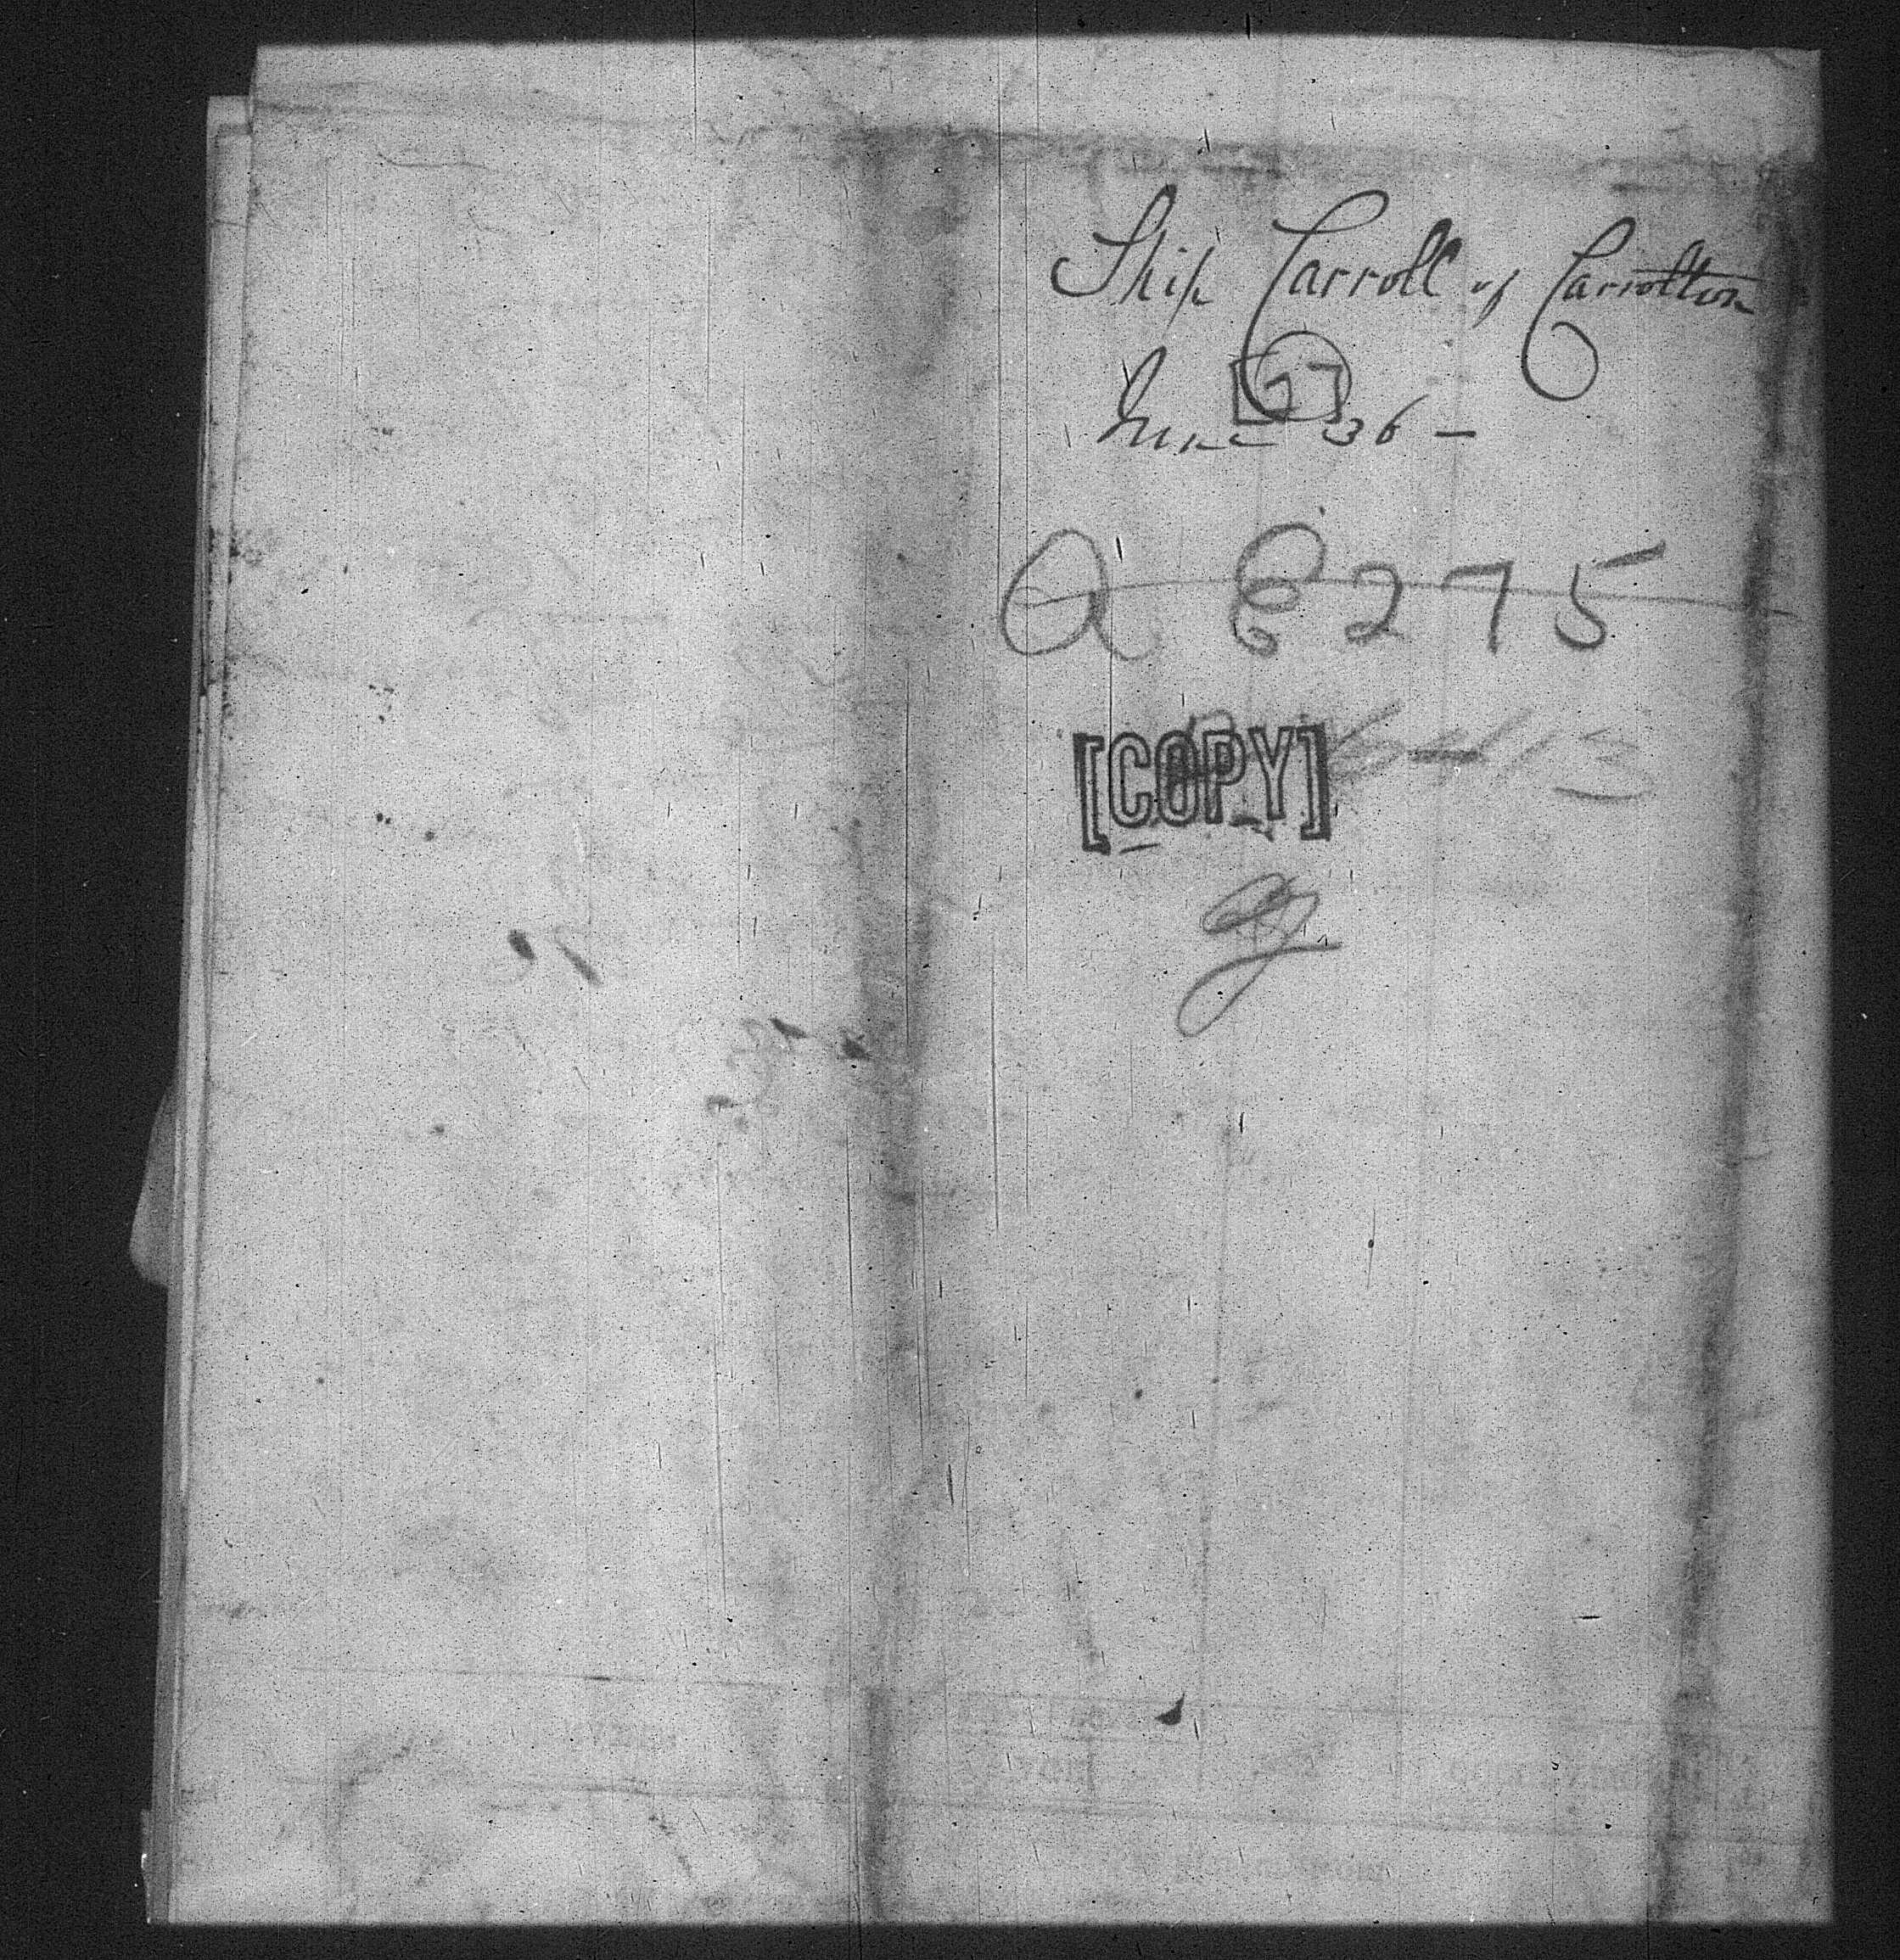 Ship Carroll of Carrollton
June 36 -
Q E 275
[COPY]